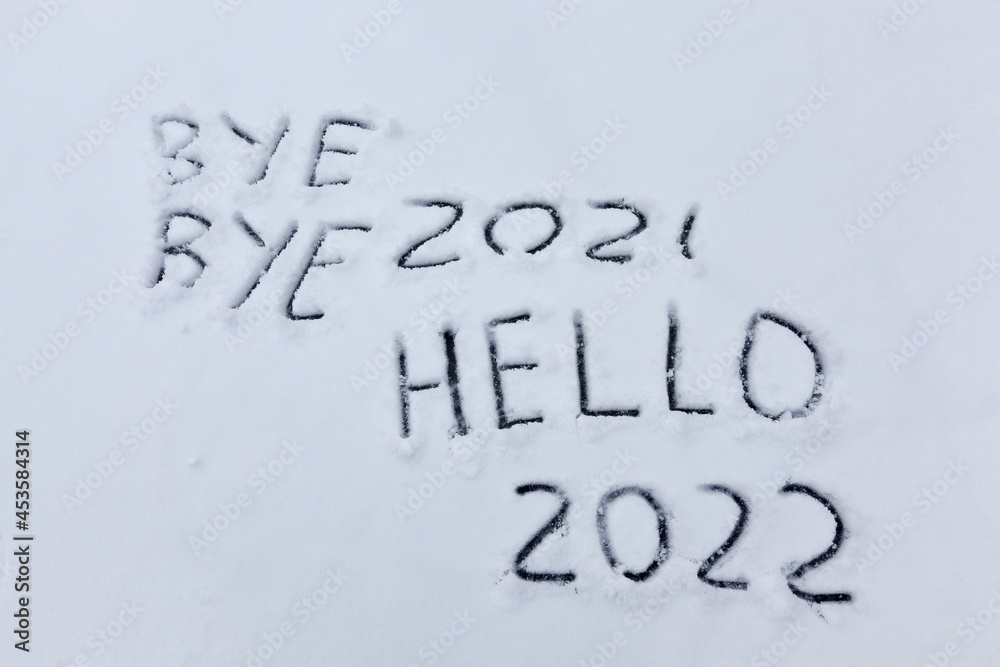 BYE
BYE 2021
HELLO
2022
Adobe Stock | #453584314